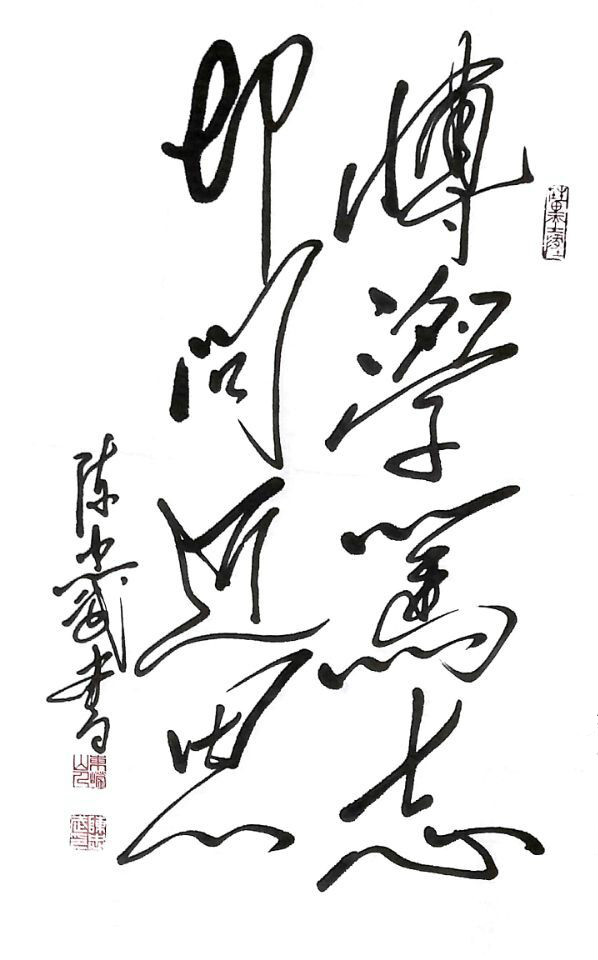 博學篤志
切問近思
陈忠武書